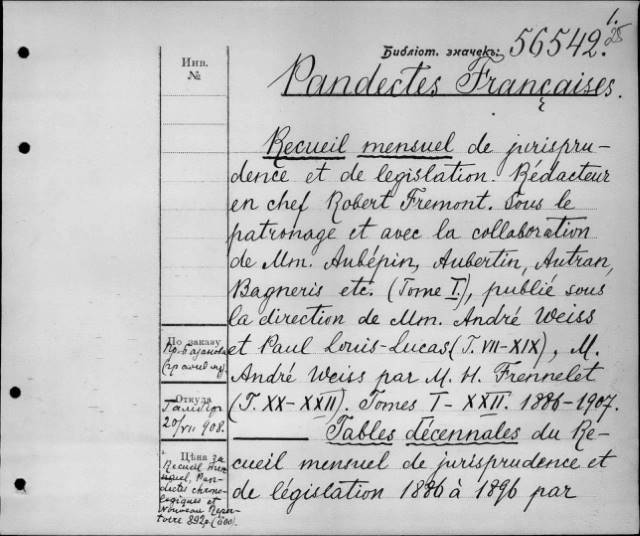 1.
25
Библіот. значекъ: 56542.
Инв.
№
Pandectes Françaises.
Recueil mensuel de jurispru-
dence et de legislation. Rédacteur
en chef Robert Fremont. Sous le
patronage et avec la collaboration
de Mm. Aubépin, Aubertin, Autran,
Bagneris etc. (Tome I), publié sous
la direction de Mm. André Weiss
et Paul Louis-Lucas (T. VII-XIX), M.
André Weiss par M. H. Frennelet
(T. XX-XXII). Tomes I-XXII. 1886-1907.
Tables décennales du Re-
cueil mensuel de jurisprudence et
de législation 1886 à 1896 par
По заказу
Откуда
20/VII 908.
Цѣна за
Recueil men-
suel, Pan-
dectes chrono-
logiques et
Nouveau Réper-
toire 892